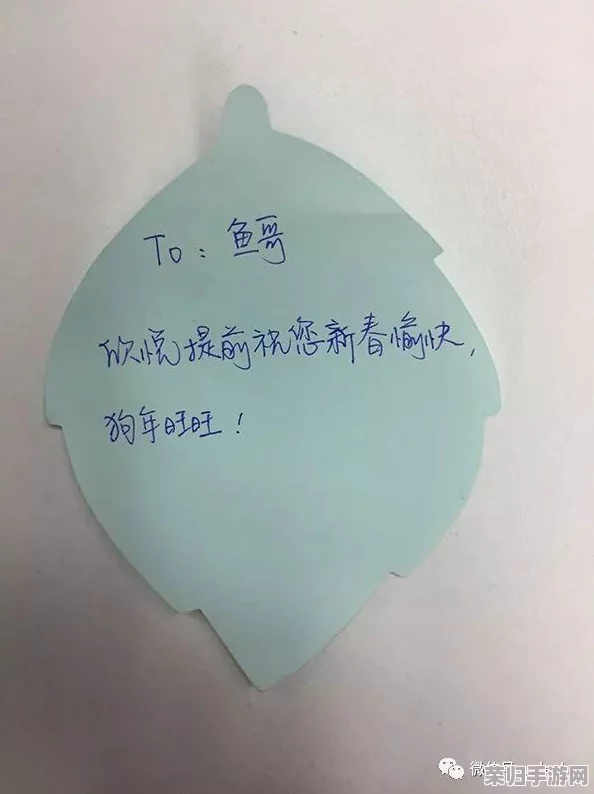 To: 鱼哥
欣悦提前祝您新春愉快,
狗年旺旺!
荣归手游网